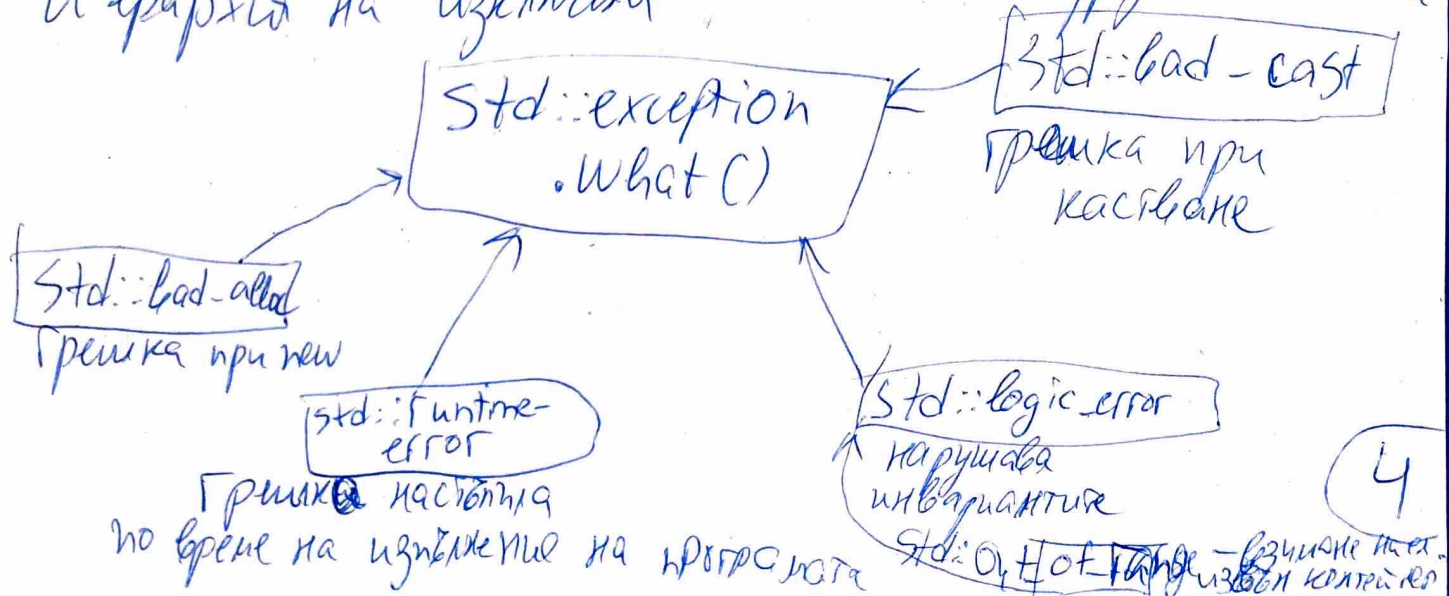 Йерархия на изключения
std::exception
.what()
std::bad-cast
Грешка при
кастване
std::bad-alloc
Грешка при new
std::runtime-
error
Грешка настъпила
по време на изпълнение на програмата
std::logic_error
нарушава
инвариантите
std::out_of_range – взимане на ел.
извън контейнер
4